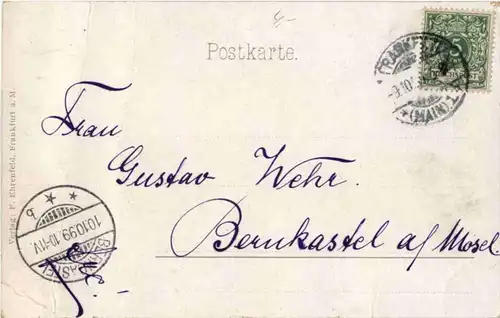 Postkarte.
Frau
Gustav Wehr.
Bernkastel a/Mosel
Verlag: F. Ehrenfeld, Frankfurt a. M.
(MAIN) 1
5
10.10.99.10-11V